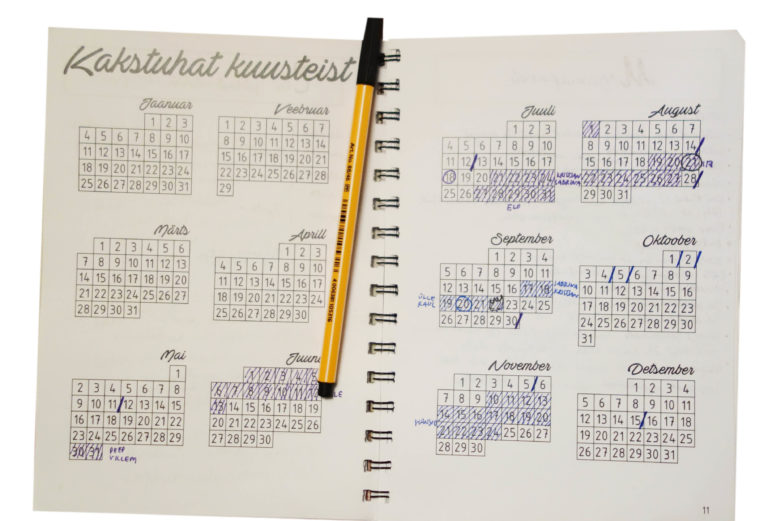 Kakstuhat kuusteist
Jaanuar
1 2 3
4 5 6 7 8 9 10
11 12 13 14 15 16 17
18 19 20 21 22 23 24
25 26 27 28 29 30 31
Veebruar
1 2 3 4 5 6 7
8 9 10 11 12 13 14
15 16 17 18 19 20 21
22 23 24 25 26 27 28
29
Märts
1 2 3 4 5 6
7 8 9 10 11 12 13
14 15 16 17 18 19 20
21 22 23 24 25 26 27
28 29 30 31
Aprill
1 2 3
4 5 6 7 8 9 10
11 12 13 14 15 16 17
18 19 20 21 22 23 24
25 26 27 28 29 30
Mai
1
2 3 4 5 6 7 8
9 10 11 12 13 14 15
16 17 18 19 20 21 22
23 24 25 26 27 28 29
30 31 PEEP
VILLEM
Juun
1 2 3 4 5
6 7 8 9 10 11 12
13 14 15 16 17 18 19
20 21 22 23 24 25 26
27 28 29 30
Juuli
1 2 3
4 5 6 7 8 9 10
11 12 13 14 15 16 17
18 19 20 21 22 23 24
25 26 27 28 29 30 31
KRISTJAN
SABRINA
ELE
August
1 2 3 4 5 6 7
8 9 10 11 12 13 14
15 16 17 18 19 20 21
22 23 24 25 26 27 28
29 30 31
September
1 2 3 4
5 6 7 8 9 10 11
12 13 14 15 16 17 18
19 20 21 23 24 25
26 27 28 29 30
SABRINA
KRISTJAN
ÜLLE
Oktoober
1 2
3 4 5 6 7 8 9
10 11 12 13 14 15 16
17 18 19 20 21 22 23
24 25 26 27 28 29 30
31
November
1 2 3 4 5 6
7 8 9 10 11 12 13
14 15 16 17 18 19 20
21 22 23 24 25 26 27
28 29 30
Detsember
1 2 3 4
5 6 7 8 9 10 11
12 13 14 15 16 17 18
19 20 21 22 23 24 25
26 27 28 29 30 31
11